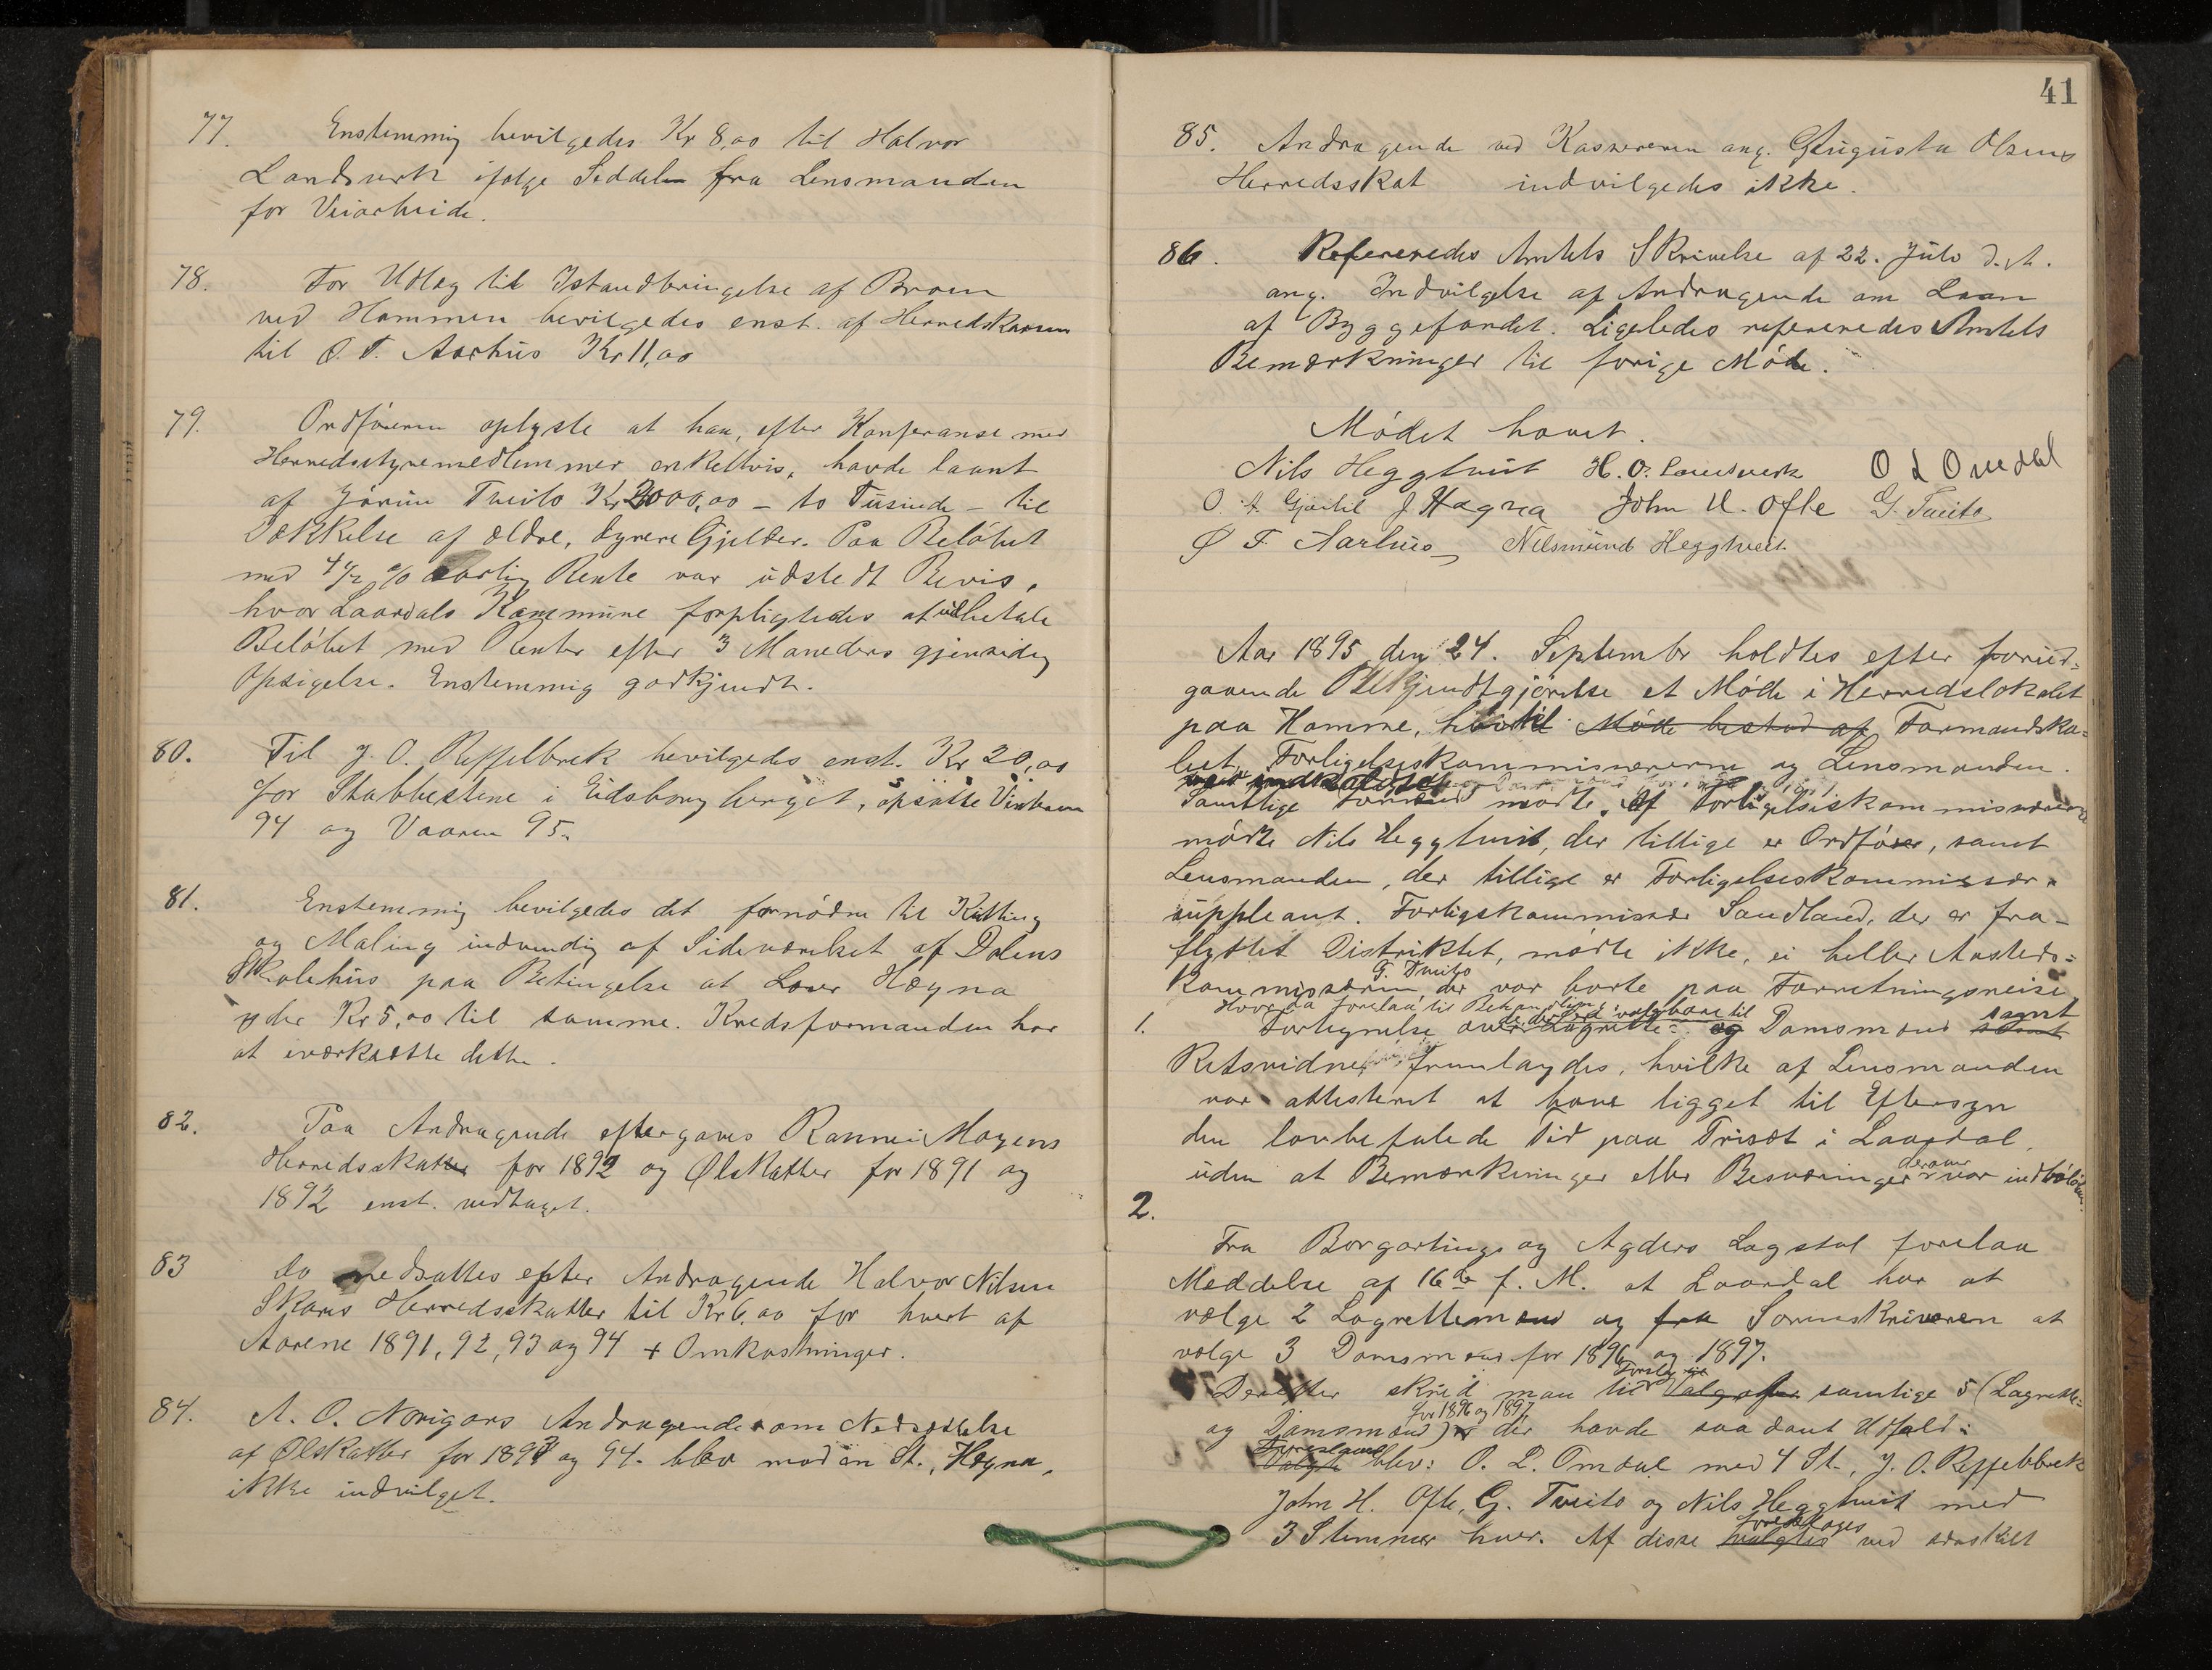 77. Enstemmig bevilgedes Kr 8,00 til Halvor
Landsverk ifølge Seddel fra Lensmanden
for Veiarbeide.
78. For Udlæg til Istandbringelse af Broen
ved Hammen bevilgedes enst. af Herredskassen
til Ø. T. Aarhus Kr 11,00
79. Ordføreren oplyste at han, efter Konferanse med
Herredsstyremedlemmer enkeltvis, havde laant
af Jörun Tveito Kr 2000,00 – to Tusinde – til
Dækkelse af ældre, dyrere Gjelder. Paa Beløbet
med 4 1/2 % aarlig Rente var udstedt Bevis,
hvor Laardals Kommune forpligtedes at udbetale
Beløbet med Renter efter 3 Maneders gjensidig
Opsigelse. Enstemmig godkjendt.
80. Til J. O. Reffelbrek bevilgedes enst. Kr 20,00
for Stabbestene i Eidsborgberget, opsatte Vinteren
94 og Vaaren 95.
81. Enstemmig bevilgedes det fornødne til Kitting
og Maling indvendig af Sideværelset af Dalens
Skolehus paa Betingelse at Lærer Høgna
yder Kr 5,00 til samme. Kredsformanden har
at iværksætte dette.
82. Paa Andragende eftergaves Rannei Mogens
Herredsskatter for 1892 og Ølskatter for 1891 og
1892 enst. vedtaget.
83 do nedsattes efter Andragende Halvor Nilsen
Skores Herredsskatter til Kr 6,00 for hvert af
Aarene 1891, 92, 93 og 94 + Omkostninger.
84. A. O. Norigars Andragende om Nedsættelse
af Ølskatter for 1893 og 94. blev mod en St., Høgna,
ikke indvilget.
41
85. Andragende ved Kassereren ang. Augusta Olsens
Herredsskat indvilgedes ikke.
86. Refereredes Amtets Skrivelse af 22. Juli d. A.
ang. Indvilgelse af Andragende om Laan
af Byggefondet. Ligeledes refereredes Amtets
Bemærkninger til forige Møde.
Mødet hævet.
Nils Heggtveit H. O. Landsverk O L Omdal
O. A. Gjøitil J. Høgna John H. Ofte G. Tveito
Ø T. Aarhus Nilsmund Heggtveit
Aar 1895 den 24. Septembr holdtes efter forud-
gaaende Bekjendtgjørelse et Møde i Herredslokalet
paa Hamme, hvortil Møde bestod af Formandska-
bet, Forligelseskommisærerne og Lensmanden.
var indkaldt
Samtlige Formænd mødte. Af Forligelseskommisærerne
mødte Nils Heggtveit, der tillige er Ordfører, samt
Lensmanden, der tillige er Forligelseskommissær-
suppleant. Forligskommisær Sandland, der er fra-
flyttet Distriktet, mødte ikke, ei heller Amtsteds-
kommissæren G. Tveito der var borte paa Forretningsreise
Hvor da forelaa til Behandling:
1. Fortegnelse over de der ere valgbare til Lagrette- og Domsmænd samt samt
Retsvidner fremlagdes, hvilke af Lensmanden
var attesteret at have ligget til Eftersyn
den lovbefalede Tid paa Trisæt i Laardal,
uden at Bemærkninger eller Besværinger derover var indløbne.
2.
Fra Borgartings og Agders Lagstol forelaa
Meddelse af 16de f. M. at Laardal har at
vælge 2 Lagrettemænd og fra Sorenskriveren at
vælge 3 Domsmænd for 1896 og 1897.
Derefter skred man til Forslag til Valg af samtlige 5 (Lagrette-
og Domsmænd) for 1896 og 1897 der havde saadant Udfald:
Foreslaaet Valgte blev: O. L. Omdal med 4 St., J. O. Reffelbrek
John H. Ofte, G. Tveito og Nils Heggtveit med
3 Stemmer hver. Af disse foresloges valgtes ved særskilt